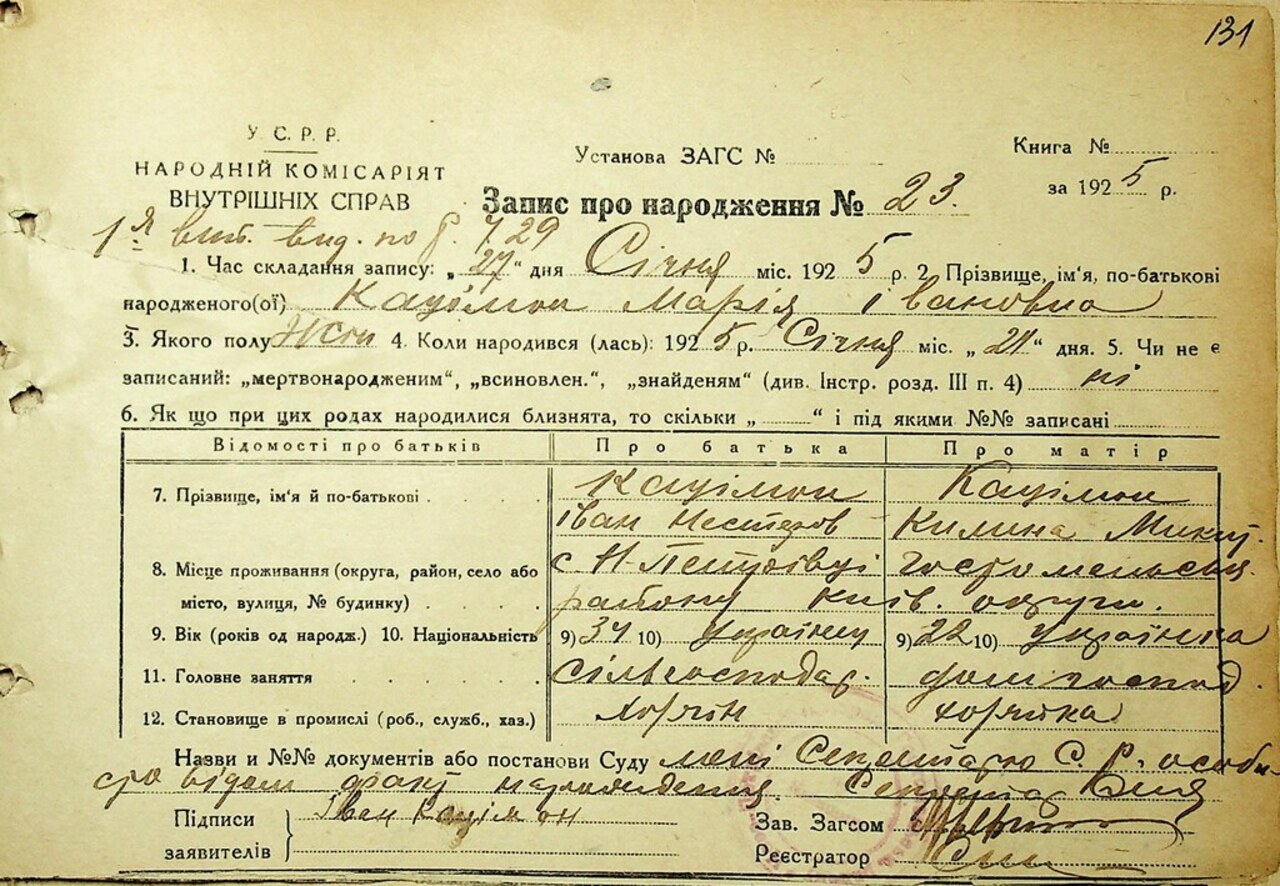 131
У. С. Р. Р.
НАРОДНІЙ КОМІСАРІЯТ
ВНУТРІШНІХ СПРАВ
Установа ЗАГС №
Книга №
за 1925 р.
Запис про народження № 23.
1я вид. по 7 29
1. Час складання запису: „27“ дня Січня міс. 1925 р. 2. Прізвище, ім'я, по-батькові
народженого(ої) Кацімон Марія Івановна
3. Якого полу Жін 4. Коли народився (лась): 1925 р. Січня міс. „21“ дня. 5. Чи не є
записаний: „мертвонародженим“, „всиновлен.“, „знайденям“ (див. Інстр. розд. III п. 4) ні
6. Як що при цих родах народилися близнята, то скільки „ “ і під якими №№ записані
Відомості про батьків Про батька Про матір
7. Прізвище, ім'я й по-батькові Кацімон Кацімон
Іван Нестеров Килина Микит.
8. Місце проживання (округа, район, село або с. Н-Петрівці Гостомельськ.
місто, вулиця, № будинку) району Київ. округи.
9. Вік (років од народж.) 10. Національність 9) 34 10) Українец 9) 22 10) Українка
11. Головне заняття сільгосподар. дом господ.
12. Становище в промислі (роб., служб., хаз.) хозяїн хозяйка
Назви и №№ документів або постанови Суду мені Секретарю С. Р. особи-
сто відом факт народження. Секретар
Підписи Іван Кацімон
заявителів
Зав. Загсом
Реєстратор